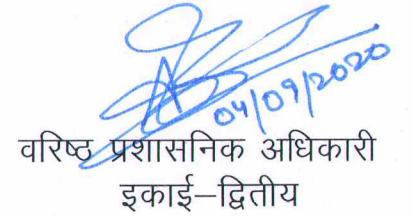 04/09/2020
वरिष्ठ प्रशासनिक अधिकारी
इकाई–द्वितीय